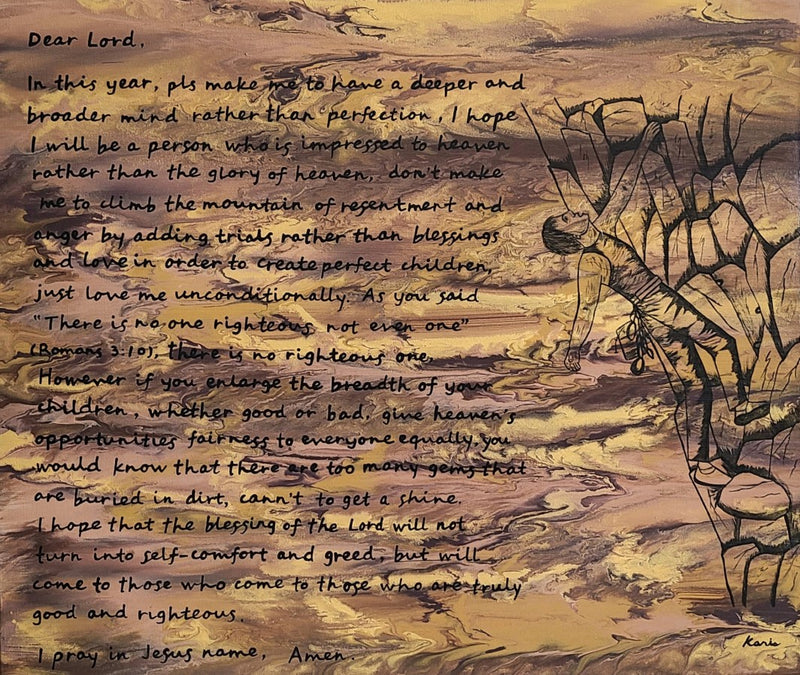 Dear Lord,
In this year, pls make me to have a deeper and
broader mind rather than perfection, I hope
I will be a person who is impressed to heaven
rather than the glory of heaven, don't make
me to climb the mountain of resentment and
anger by adding trials rather than blessings
and love in order to create perfect children,
just love me unconditionally. As you said
"There is no one righteous, not even one"
(Romans 3:10), there is no righteous one,
However if you enlarge the breadth of your
children, whether good or bad, give heaven's
opportunities fairness to everyone equally, you
would know that there are too many gems that
are buried in dirt, cann't to get a shine.
I hope that the blessing of the Lord will not
turn into self-comfort and greed, but will
come to those who come to those who are truly
good and righteous.
I pray in Jesus name, Amen.